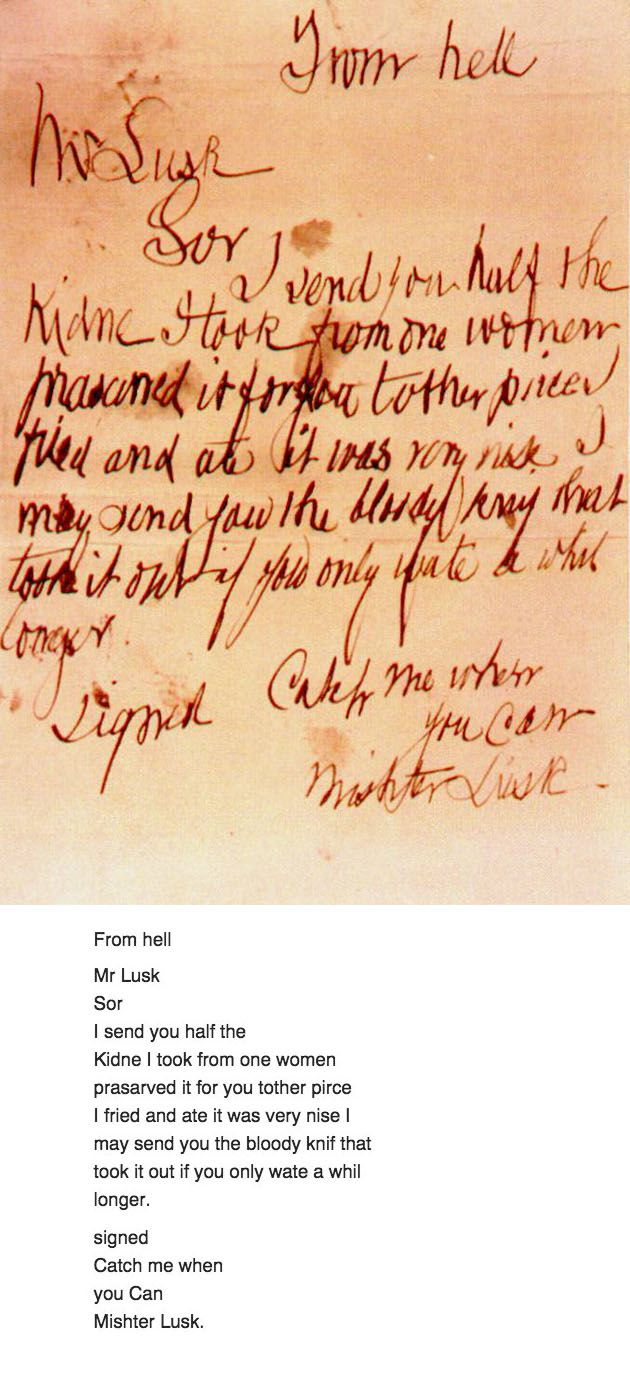 From hell
Mr Lusk
Sor
I send you half the
Kidne I took from one women
prasarved it for you tother piece I
fried and ate it was very nise I
may send you the bloody knif that
took it out if you only wate a whil
longer.
signed
Catch me when
you Can
Mishter Lusk -
From hell
Mr Lusk
Sor
I send you half the
Kidne I took from one women
prasarved it for you tother pirce
I fried and ate it was very nise I
may send you the bloody knif that
took it out if you only wate a whil
longer.
signed
Catch me when
you Can
Mishter Lusk.